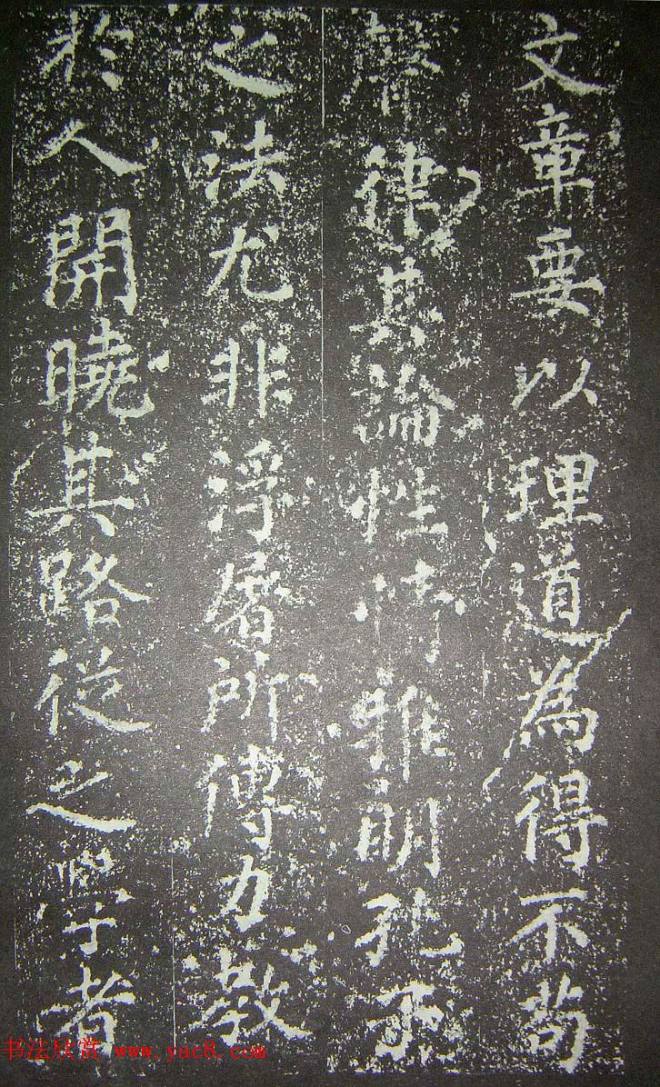 文章要以理道為得不苟
聲律其論性情推明孔子
之法尤非浮屠所傳力教
於人開曉其路從之學者
书法欣赏 www.yac8.com